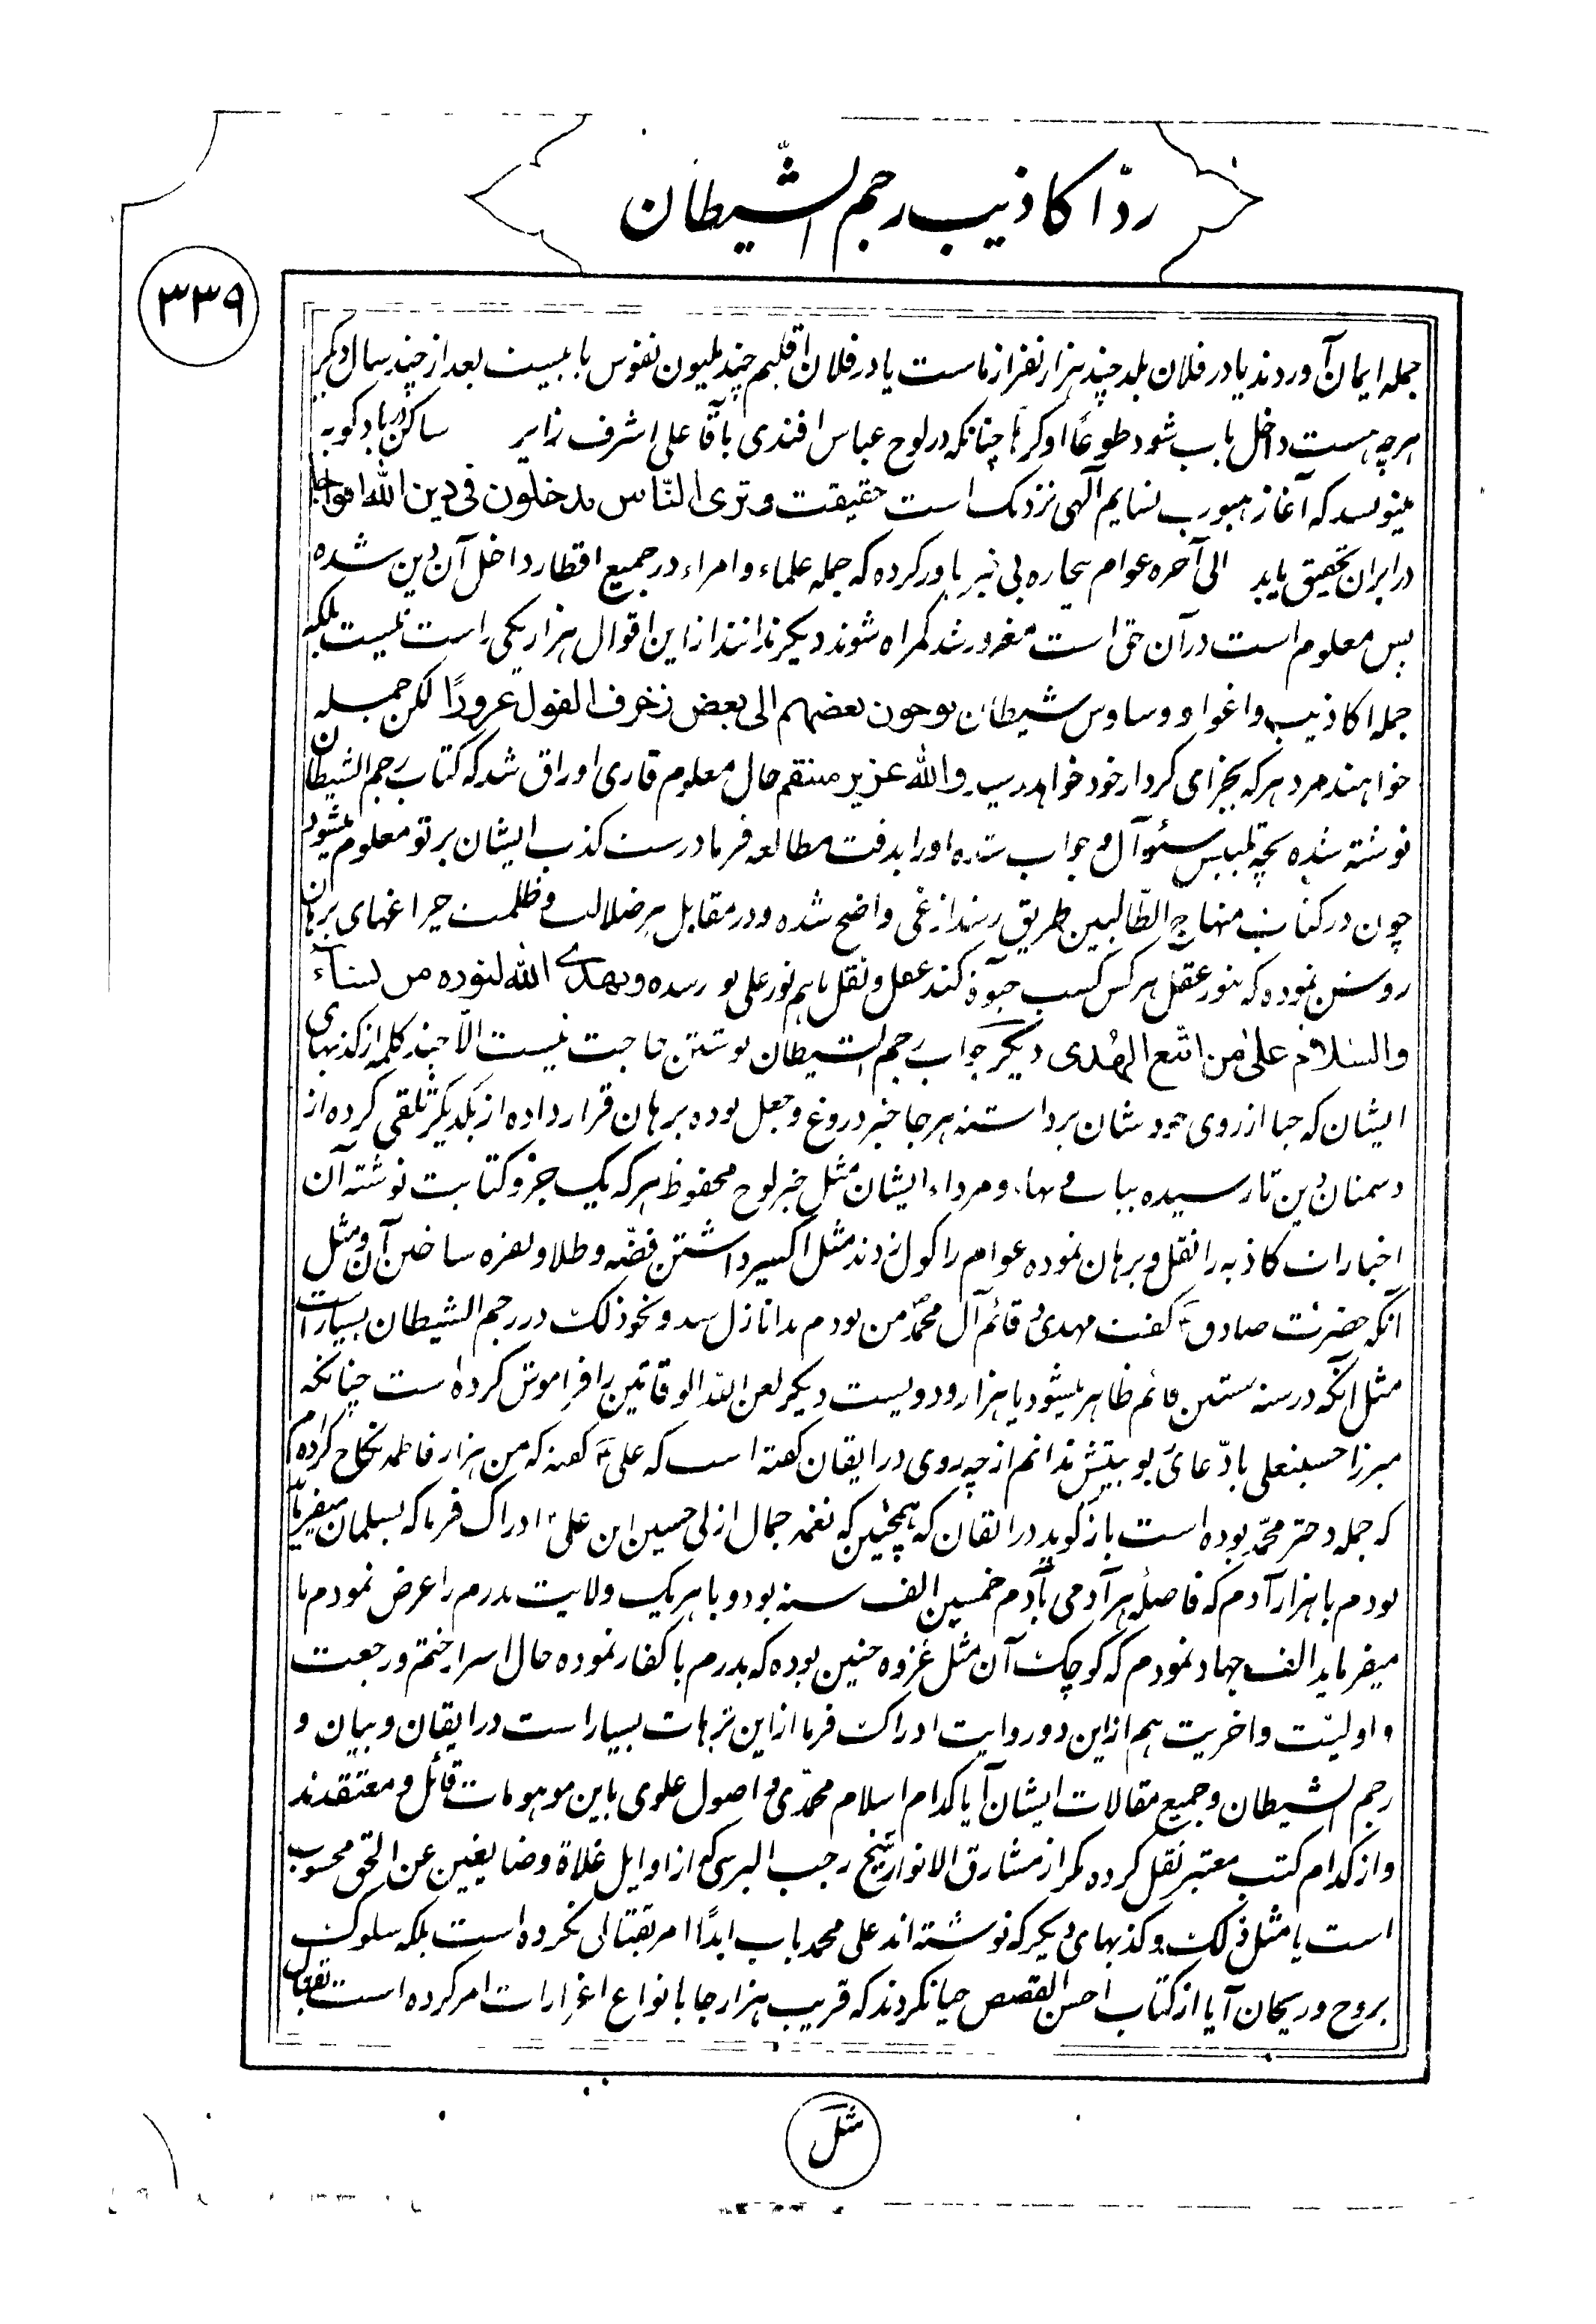 ردّ اکاذیب رجم الشّیطان
۳۳۹
جمله ایمان آوردند یا در فلان بلد چند هزار نفر از ماست یا در فلان اقلیم چند ملیون نفوس بابیست بعد از چند سال دیگر
هرچه هست داخل باب شود طوعًا او کرهًا چنانکه در لوح عباس افندی بآقا علی اشرف زایر ساکن در بادکوبه
مینویسد که آغاز هبوب نسایم آلهی نزدیک است حقیقت و تری النّاس یدخلون فی دین اللّه افواجا
در ایران تحقیق یابد الی آخره عوام بیچاره بی خبر باور کرده که جمله علماء و امراء در جمیع اقطار داخل آن دین شده
پس معلوم است در آن حتی است مغرور شد گمراه شوند دیگر ندانند از این اقوال هزار یکی راست نیست بلکه
جمله اکاذیب و اغوا و وساوس شیطان یوحون بعضهم الی بعض زخرف القول غرورًا لکن جمله
خواهند مرد هرکه بجزای کردار خود خواهد رسید و اللّه عزیز منتقم حال معلوم قاری اوراق شد که کتاب رجم الشیطان
نوشته شده بچه تلبیس سئوآل و جواب شده اورا بدقت مطالعه فرما درست کذب ایشان بر تو معلوم میشود
چون در کتاب منهاج الطّالبین طریق رشد از غی واضح شده و در مقابل هر ضلالت و ظلمت چراغهای برهان
روشن نموده که بنور عقل هرکس کسب حیوة کند عقل و نقل باهم نور علی نور رسده و یهدی اللّه لنوره من یشآء
والسّلام علیٰ من اتّبع الهُدی دیگر جواب رجم الشیطان نوشتن حاجت نیست الّا چند کلمه از کذبهای
ایشان که حیا از روی خود شان برداشته هر جا خبر دروغ و جعل بوده برهان قرار داده از یکدیگر تلقی کرده از
دشمنان دین تا رسیده بباب و بهاء و مرداء ایشان مثل خبر لوح محفوظ هرکه یک جزو کتابت نوشته آن
اخبارات کاذبه را نقل و برهان نموده عوام را گول زدند مثل اکسیر داشتن فضّه و طلا و نقره ساختن آن و مثل
آنکه حضرت صادق ع گفت مهدی و قائم آل محمد ص من بودم بدا نازل شد و نحو ذلک در رجم الشیطان بسیار است
مثل آنکه در سنه ستین قائم ظاهر میشود یا هزار و دویست دیگر لعن اللّه الوقاتین را فراموش کرده است چنانکه
میرزا حسینعلی بادّعای ربوبیتش ندانم از چه روی در ایقان گفته است که علی ع گفته که من هزار فاطمه نکاح کرده ام
که جمله دختر محمّد بوده است باز گوید در ایقان که همچنین که نغمه جمال ازلی حسین ابن علی ع ادراک فرما که بسلمان میفرماید
بودم با هزار آدم که فاصلهٔ هر آدمی بآدم خمسین الف سنه بود و با هر یک ولایت پدرم را عرض نمودم تا
میفرماید الف جهاد نمودم که کوچک آن مثل غزوه حنین بوده که پدرم با کفار نموده حال اسرار ختم و رجعت
و اولیّت و اخریت هم از این دو روایت ادراک فرما از این ترهات بسیار است در ایقان و بیان و
رجم الشیطان و جمیع مقالات ایشان آیا کدام اسلام محمدّی و اصول علوی باین موهومات قائل و معتقدند
و از کدام کتب معتبر نقل کرده مگر از مشارق الانوار شیخ رجب البرسی که از اوایل غلاة و ضایغین عن الحق محسوب
است یا مثل ذلک و کذبهای دیگر که نوشته اند علی محمد باب ابدًا امر بقتالی نکرده است بلکه سلوک
بروح و ریحان آیا از کتاب احسن القصص حیا نکردند که قریب هزار جا با انواع اغرارات امر کرده است بقتال
شل